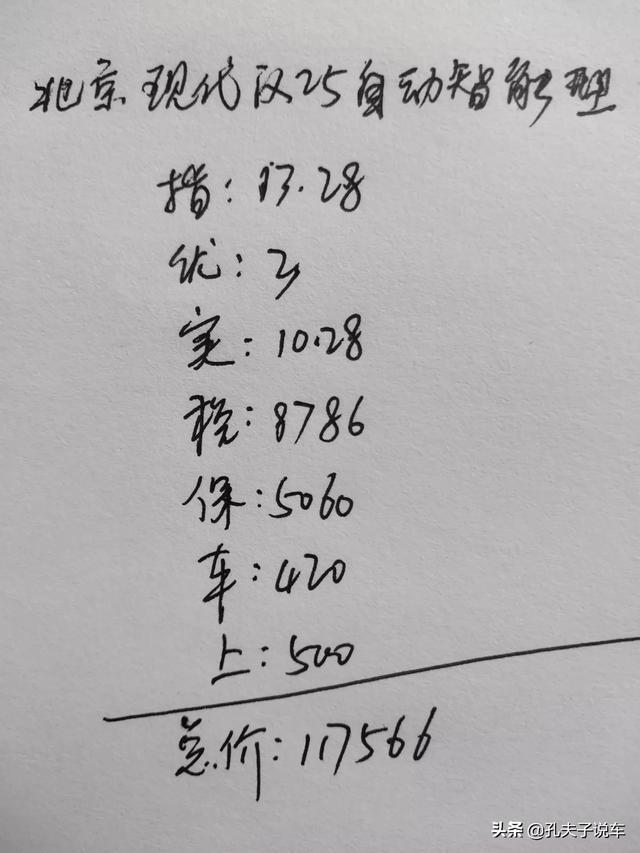 北京现代ix25自动智能型
指:13.28
优:3
实:10.28
税:8786
保:5060
车:420
上:500
总价:117566
头条 @孔夫子说车